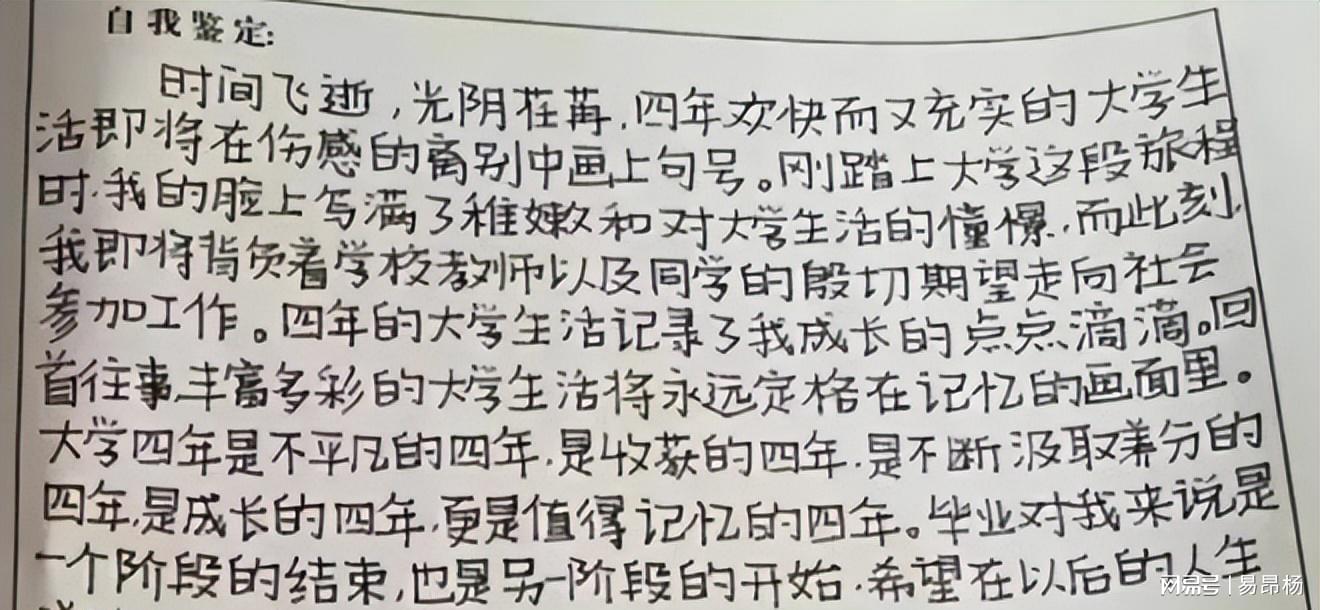 自我鉴定:
时间飞逝,光阴荏苒,四年欢快而又充实的大学生
活即将在伤感的离别中画上句号。刚踏上大学这段旅程
时,我的脸上写满了稚嫩和对大学生活的憧憬,而此刻,
我即将背负着学校教师以及同学的殷切期望走向社会
参加工作。四年的大学生活记录了我成长的点点滴滴。回
首往事,丰富多彩的大学生活将永远定格在记忆的画面里。
大学四年是不平凡的四年,是收获的四年,是不断汲取养分的
四年,是成长的四年,更是值得记忆的四年。毕业对我来说是
一个阶段的结束,也是另一阶段的开始,希望在以后的人生
网易号 | 易昂杨